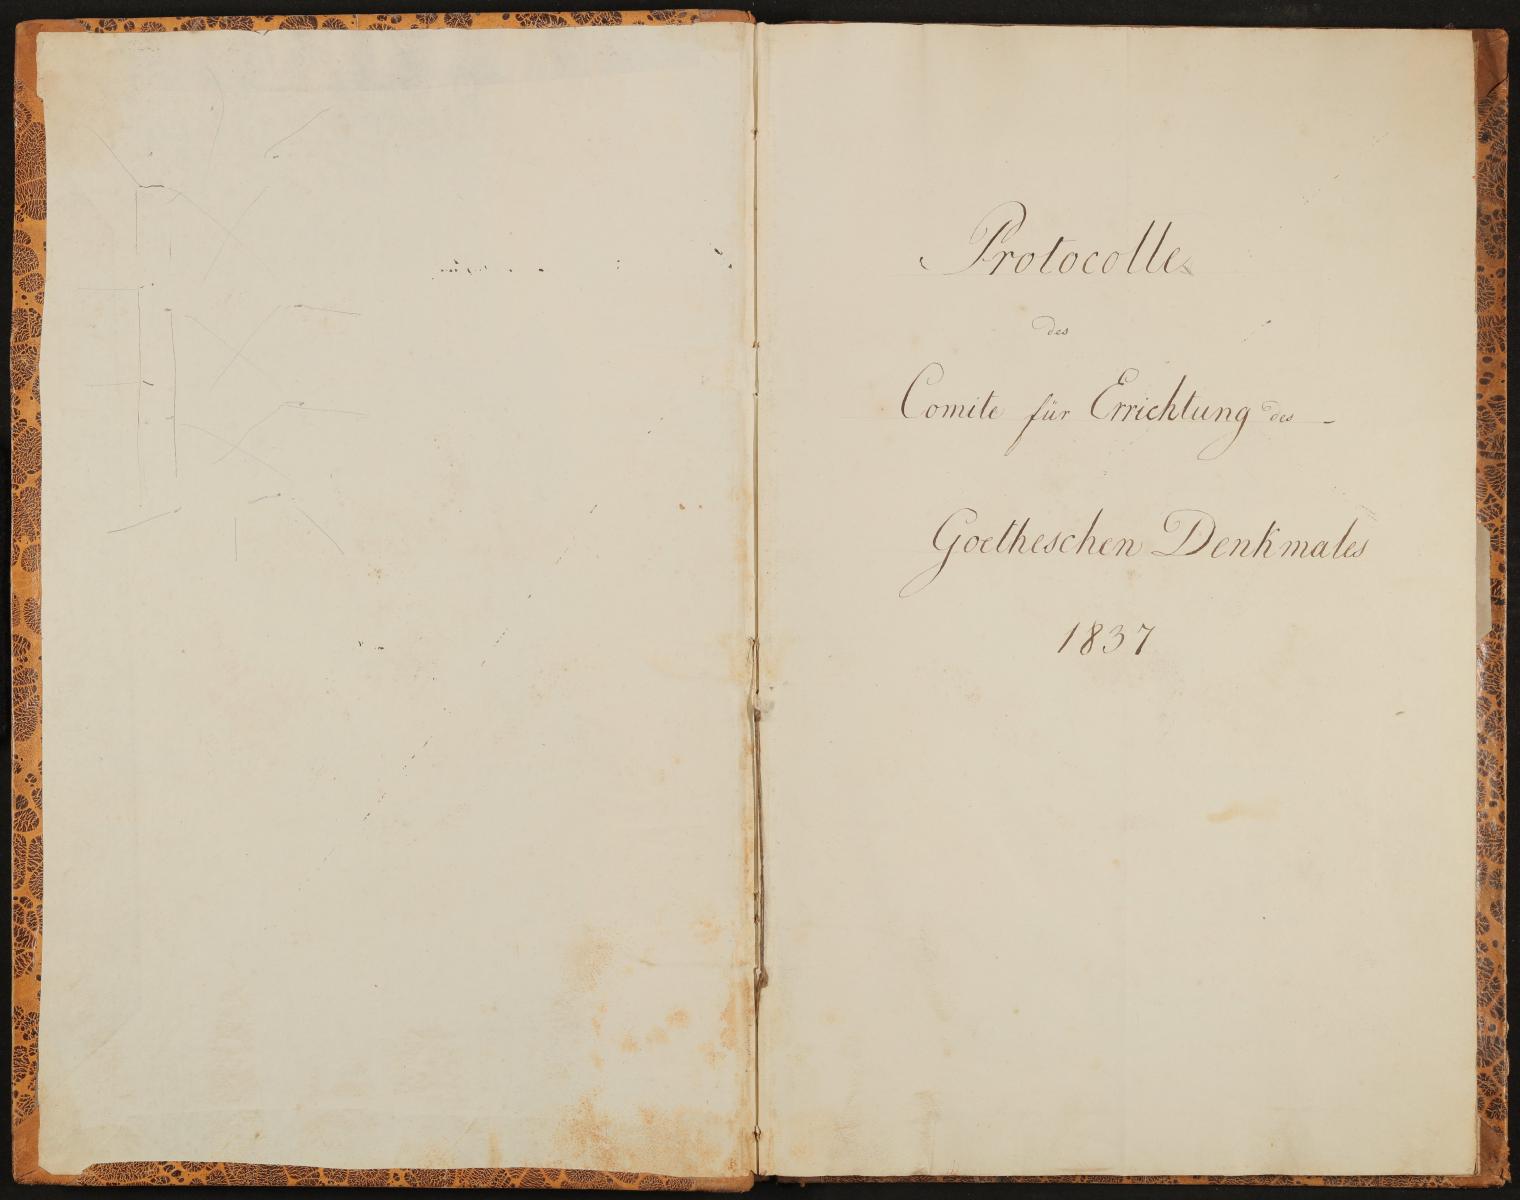 Protocolle
des
Comite für Errichtung des -
Goetheschen Denkmales
1837